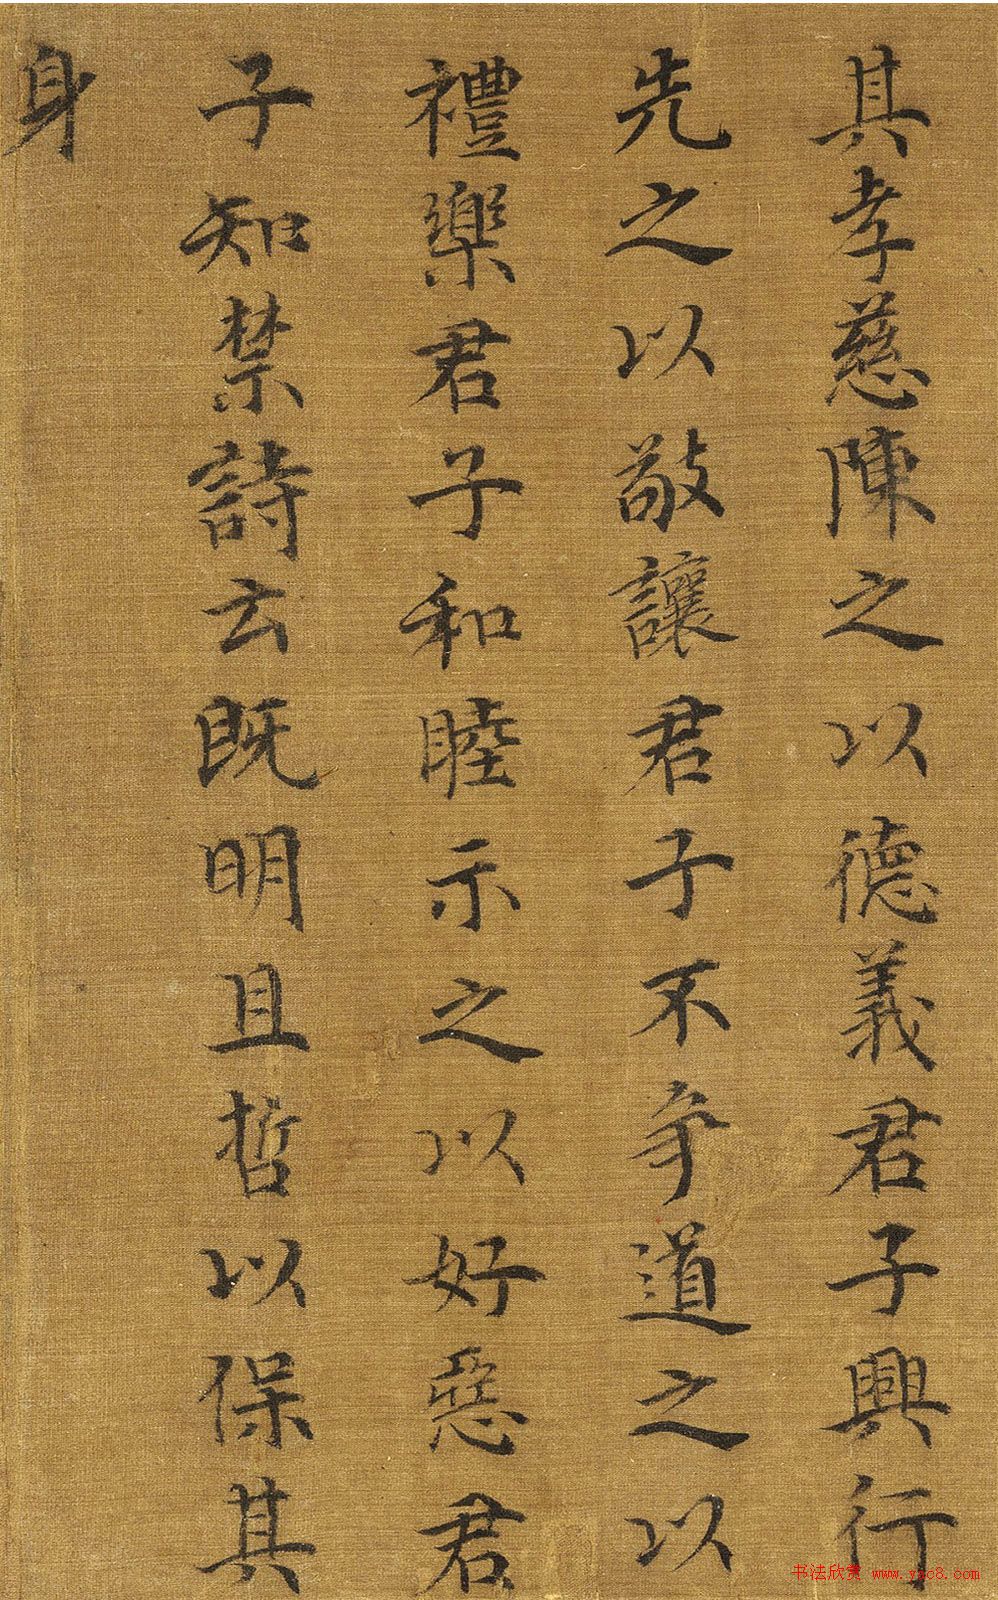 其孝慈陳之以德義君子興行
先之以敬讓君子不爭道之以
禮樂君子和睦示之以好惡君
子知禁詩云既明且哲以保其
身
书法欣赏 www.yac8.com